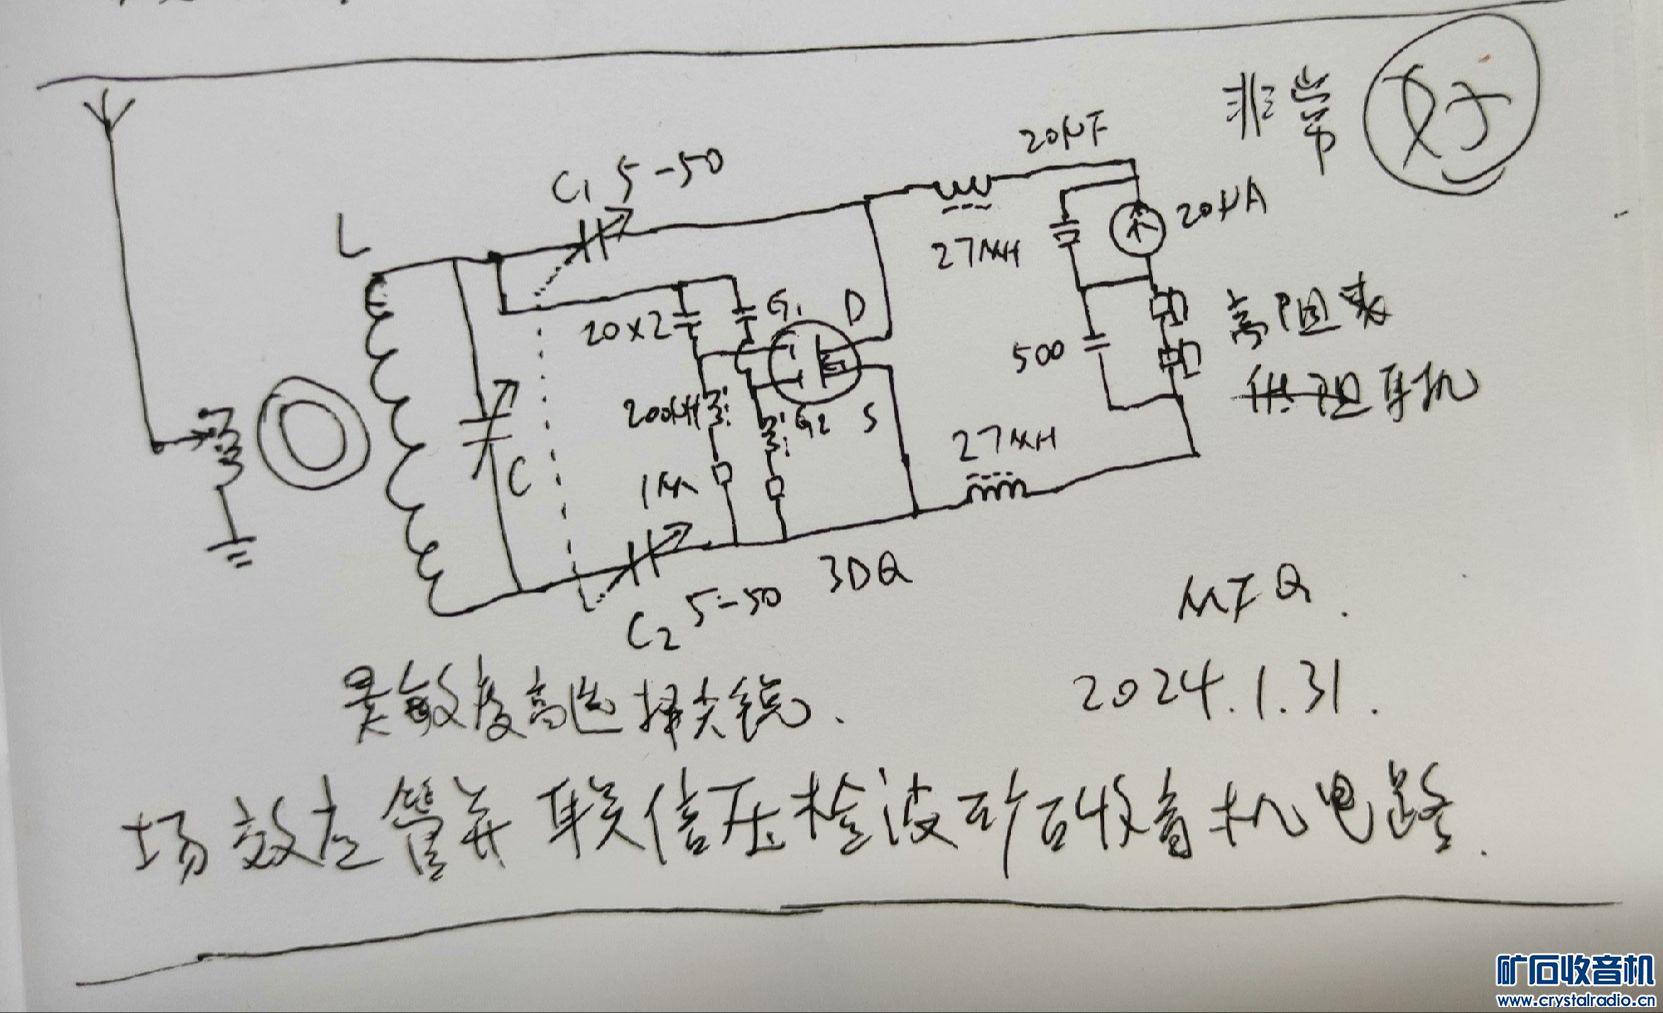 非常 好
20μF
C₁ 5-50
L
20μA
27MH
20×2
G₁
D
高阻表
500
供阻耳机
200μH
G2
S
27MH
C
1M
3DQ
C₂ 5-50
MFQ.
灵敏度高选择尖锐.
2024.1.31.
场效应管并联倍压检波矿石收音机电路.
矿石收音机
www.crystalradio.cn